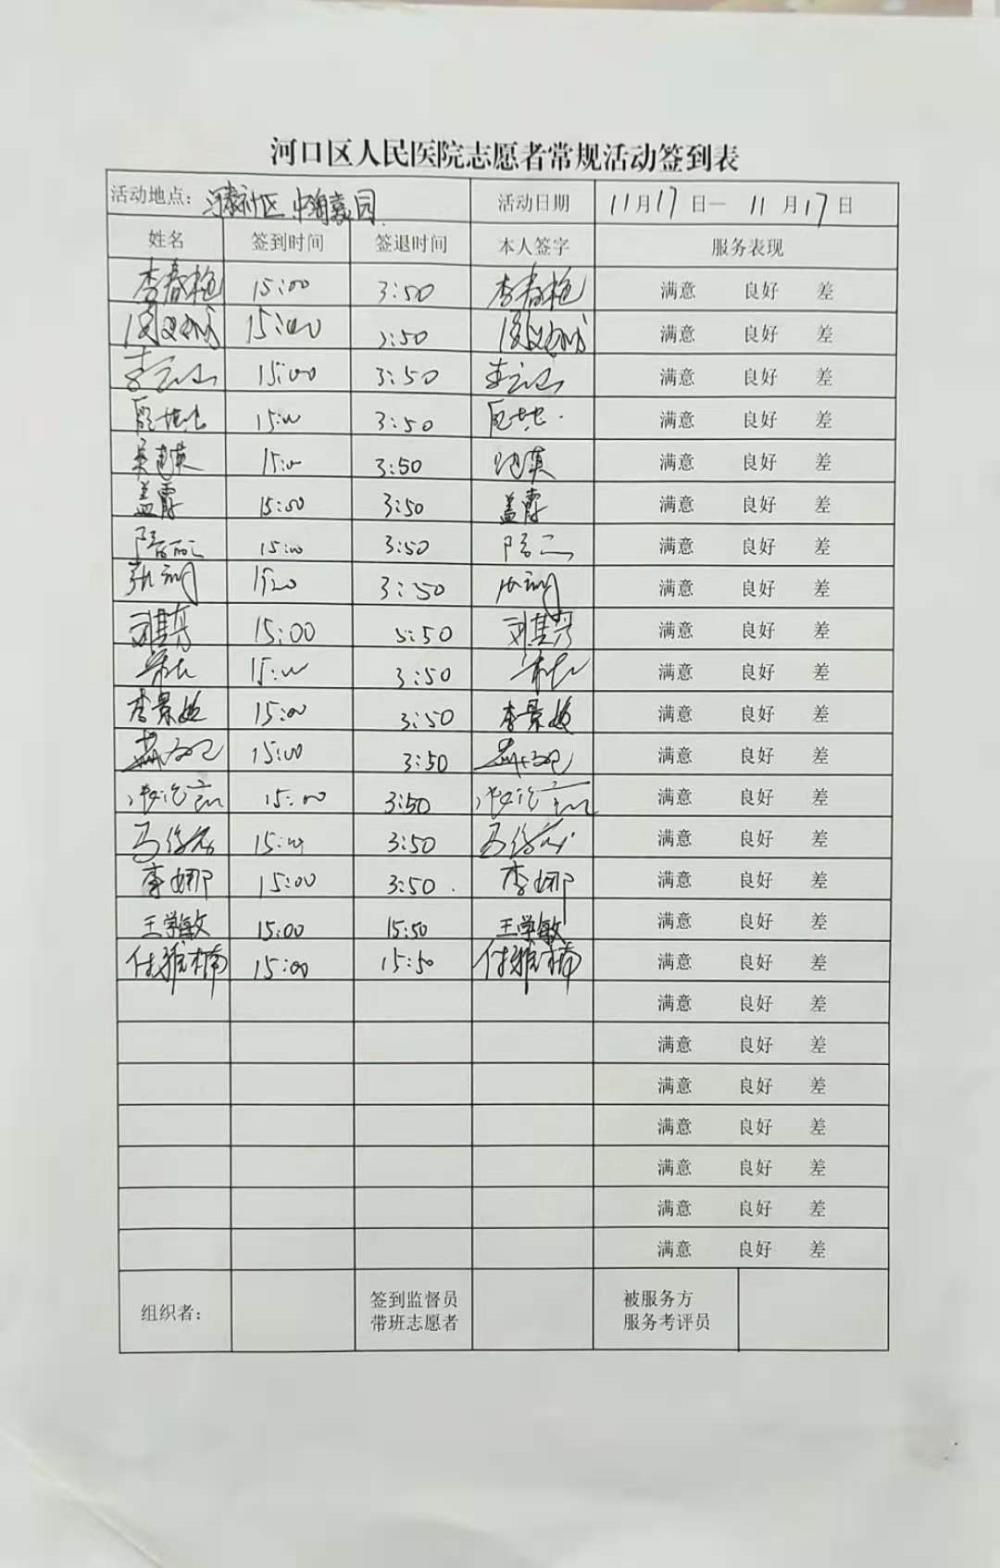 河口区人民医院志愿者常规活动签到表
活动地点: 社区 园 活动日期 11月17日— 11月17日
姓名 签到时间 签退时间 本人签字 服务表现
李春艳 15:00 3:50 李春艳 满意 良好 差
15:00 3:50 满意 良好 差
李 15:00 3:50 李 满意 良好 差
15:00 3:50 满意 良好 差
英 15:00 3:50 英 满意 良好 差
盖霞 15:00 3:50 盖霞 满意 良好 差
隋 15:00 3:50 隋 满意 良好 差
张 15:00 3:50 张 满意 良好 差
刘其芳 15:00 3:50 刘其芳 满意 良好 差
15:00 3:50 满意 良好 差
李景 15:00 3:50 李景 满意 良好 差
15:00 3:50 满意 良好 差
15:00 3:50 满意 良好 差
马 15:00 3:50 马 满意 良好 差
李娜 15:00 3:50. 李娜 满意 良好 差
王学敏 15:00 15:50 王学敏 满意 良好 差
付雅楠 15:00 15:50 付雅楠 满意 良好 差
满意 良好 差
满意 良好 差
满意 良好 差
满意 良好 差
满意 良好 差
满意 良好 差
满意 良好 差
组织者: 签到监督员 被服务方
带班志愿者 服务考评员